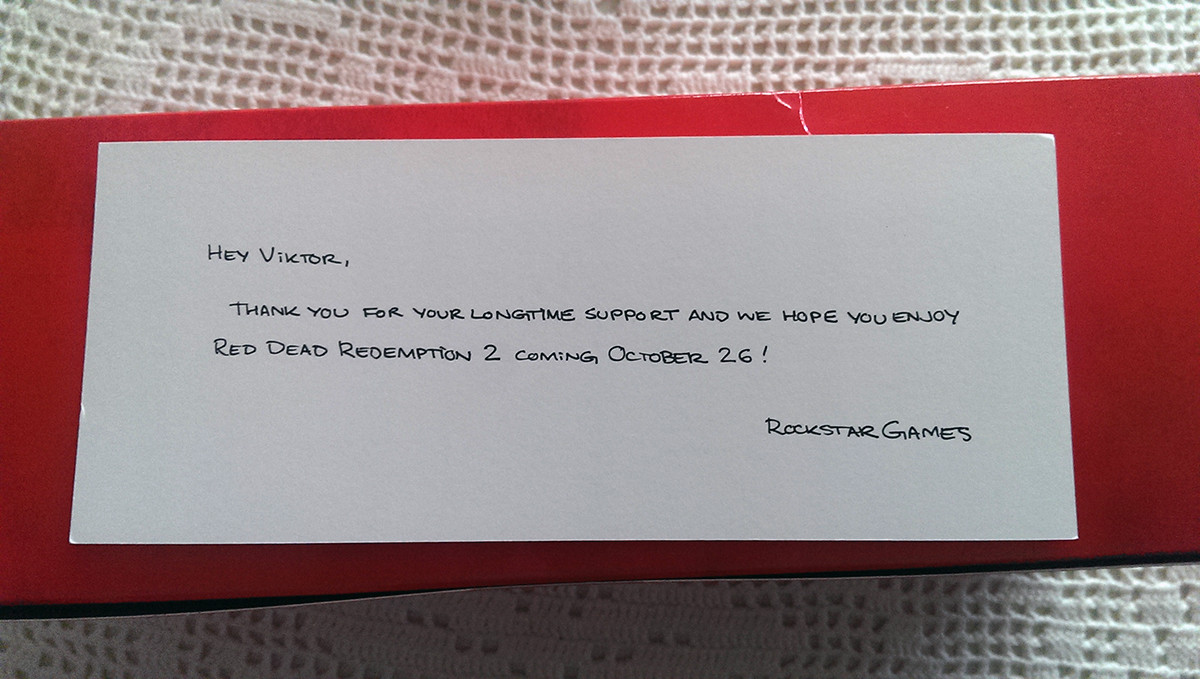 Hey Viktor,
Thank you for your longtime support and we hope you enjoy
Red Dead Redemption 2 coming October 26!
Rockstar Games